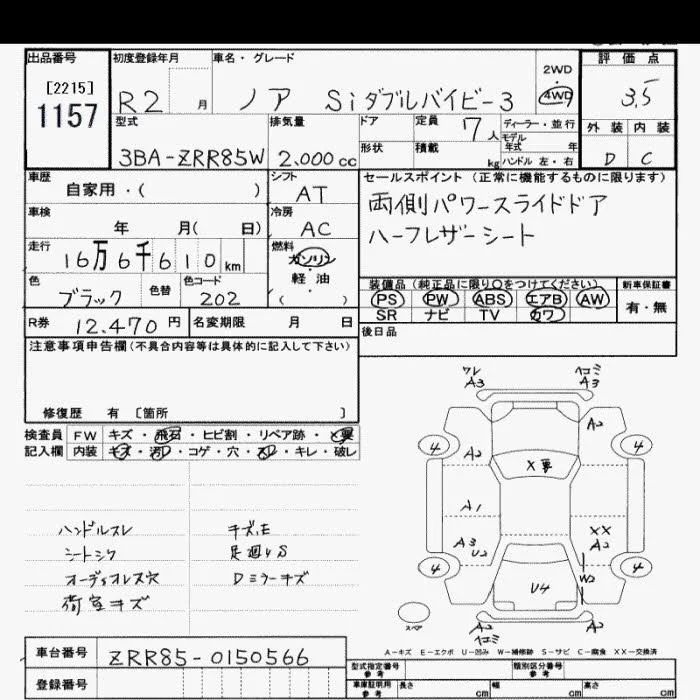 出品番号 初度登録年月 車名・グレード 評価点
[2215]
1157
R2 月 ノア Siダブルバイビー3 2WD
4WD 3.5
型式 排気量 ドア 定員 7人 ディーラー・並行 外装 内装
3BA-ZRR85W 2.000cc 形状 積載 kg モデル年式 年 ハンドル 左・右 D C
車歴 自家用・( ) シフト AT セールスポイント(正常に機能するものに限ります)
両側パワースライドドア
車検 年 月( 日) 冷房 AC
ハーフレザーシート
走行 16万6千610km 燃料 ガソリン・軽油( )
色 ブラック 色替 色コード 202
装備品(純正品に限り〇をつけてください) 新車保証書
PS PW ABS エアB AW 有・無
SR ナビ TV カワ
R券 12.470円 名変期限 月 日
後日品
注意事項申告欄(不具合内容等は具体的に記入して下さい)
修復歴 有 [箇所 ]
検査員 FW キズ・飛石・ヒビ割・リペア跡・X要
記入欄 内装 キズ・汚れ・コゲ・穴・スレ・キレ・破レ
ワレ
A3
ヘコミ
A3
A2
4 4
A2 X要
A1
XX
A2
A3
U2
4 4
W2
U4
スペア
A2
ヘコミ
A2
ハンドルスレ キズ,E
シートシワ
オーディオレス穴 Dミラーキズ
荷室キズ
A-キズ E-エクボ U-凹み W-補修跡 S-サビ C-腐食 XX-交換済
車台番号 ZRR85-0150566
登録番号
型式指定番号 参考 類別区分番号 参考
車庫証明用 参考 長さ cm 幅 cm 高さ cm